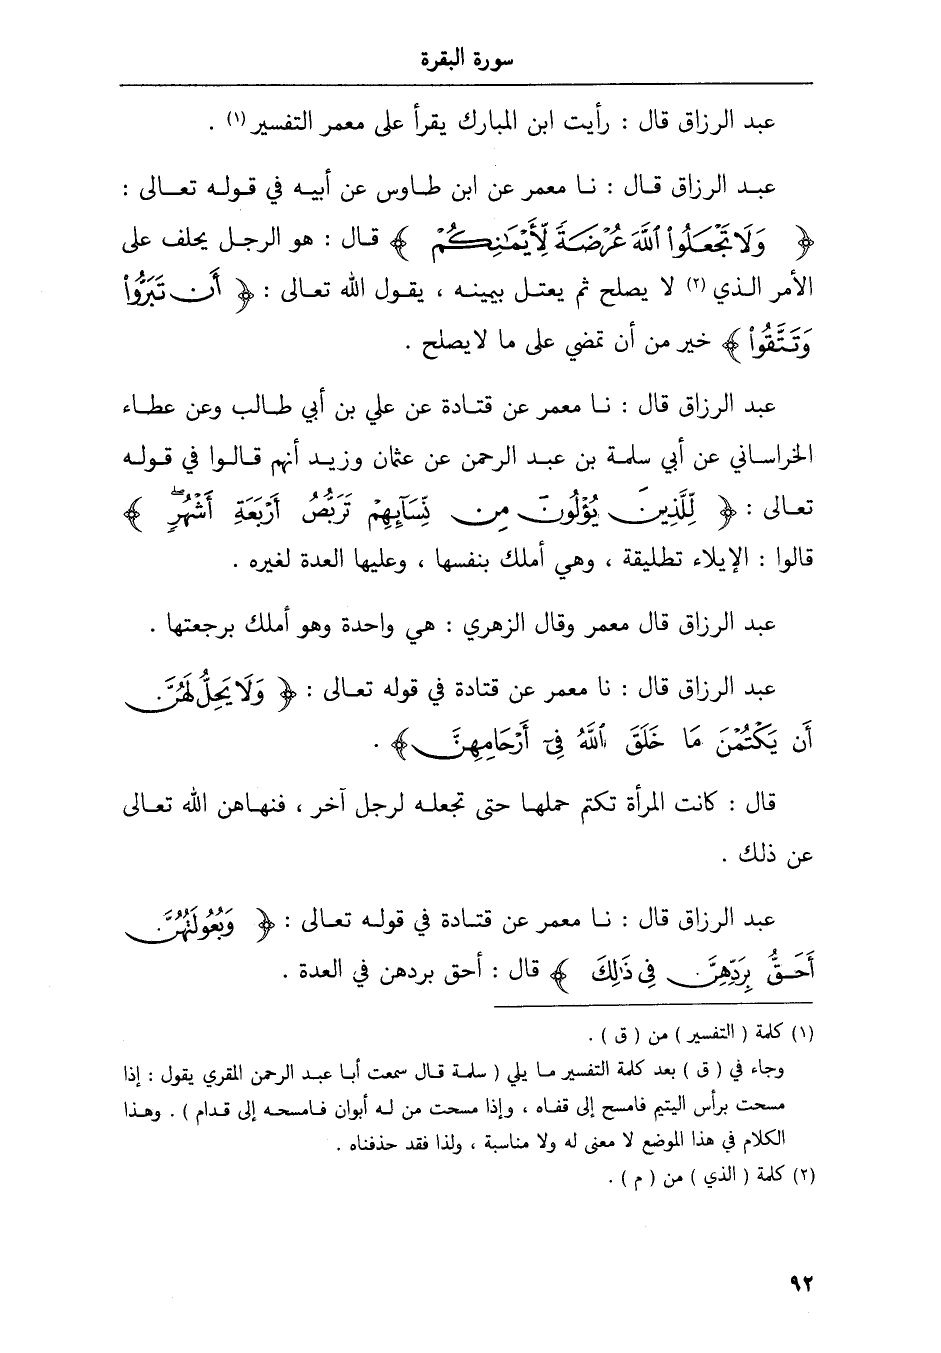 سورة البقرة
عبد الرزاق قال : رأيت ابن المبارك يقرأ على معمر التفسير (١) .
عبد الرزاق قال : نا معمر عن ابن طاوس عن أبيه في قوله تعالى :
﴿ وَلَا تَجْعَلُواْ ٱللَّهَ عُرْضَةً لِّأَيْمَٰنِكُمْ ﴾ قال : هو الرجل يحلف على
الأمر الذي (٢) لا يصلح ثم يعتل بيمينه ، يقول الله تعالى : ﴿ أَن تَبَرُّواْ
وَتَتَّقُواْ ﴾ خير من أن تمضي على ما لايصلح .
عبد الرزاق قال : نا معمر عن قتادة عن علي بن أبي طالب وعن عطاء
الخراساني عن أبي سلمة بن عبد الرحمن عن عثمان وزيد أنهم قالوا في قوله
تعالى : ﴿ لِّلَّذِينَ يُؤْلُونَ مِن نِّسَآئِهِمْ تَرَبُّصُ أَرْبَعَةِ أَشْهُرٍۖ ﴾
قالوا : الإيلاء تطليقة ، وهي أملك بنفسها ، وعليها العدة لغيره .
عبد الرزاق قال معمر وقال الزهري : هي واحدة وهو أملك برجعتها .
عبد الرزاق قال : نا معمر عن قتادة في قوله تعالى : ﴿ وَلَا يَحِلُّ لَهُنَّ
أَن يَكْتُمْنَ مَا خَلَقَ ٱللَّهُ فِىٓ أَرْحَامِهِنَّ ﴾ .
قال : كانت المرأة تكتم حملها حتى تجعله لرجل آخر ، فنهاهن الله تعالى
عن ذلك .
عبد الرزاق قال : نا معمر عن قتادة في قوله تعالى : ﴿ وَبُعُولَتُهُنَّ
أَحَقُّ بِرَدِّهِنَّ فِى ذَٰلِكَ ﴾ قال : أحق بردهن في العدة .
(١) كلمة ( التفسير ) من ( ق ) .
وجاء في ( ق ) بعد كلمة التفسير ما يلي ( سلمة قال سمعت أبا عبد الرحمن المقري يقول : إذا
مسحت برأس اليتيم فامسح إلى قفاه ، وإذا مسحت من له أبوان فامسحه إلى قدام ) . وهذا
الكلام في هذا الموضع لا معنى له ولا مناسبة ، ولذا فقد حذفناه .
(٢) كلمة ( الذي ) من ( م ) .
٩٢